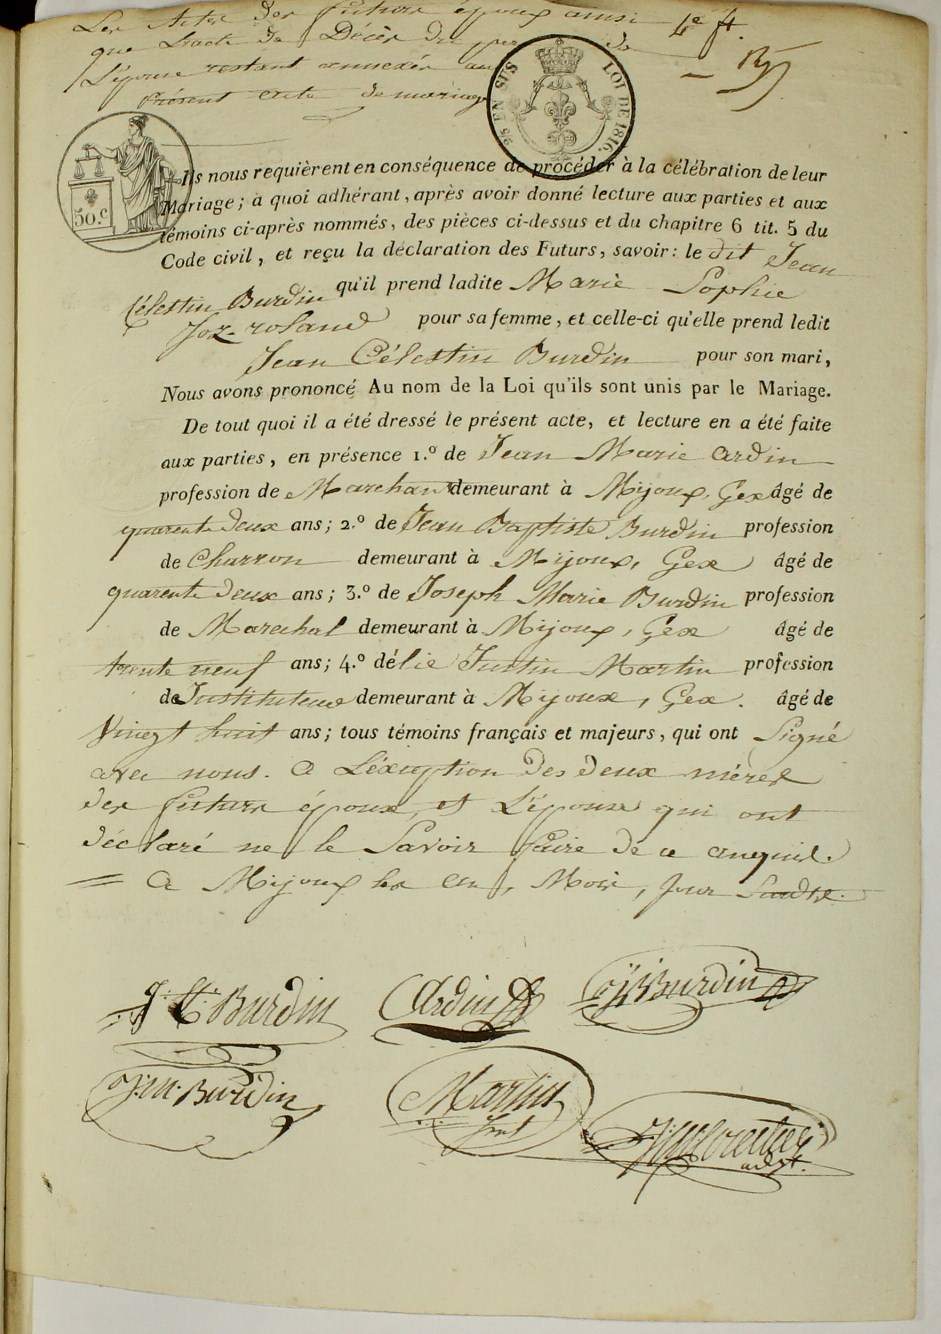 Les Actes des futurs époux ainsi
que l'acte de Décès du père de
l'épouse restant annexés au
présent acte de mariage
4e ft.
25 EN SUS
LOI DE 1816.
50.c
Ils nous requièrent en conséquence de procéder à la célébration de leur
Mariage; à quoi adhérant, après avoir donné lecture aux parties et aux
témoins ci-après nommés, des pièces ci-dessus et du chapitre 6 tit. 5 du
Code civil, et reçu la déclaration des Futurs, savoir: le dit Jean
Célestin Burdin qu'il prend ladite Marie Sophie
Joz-roland pour sa femme, et celle-ci qu'elle prend ledit
Jean Célestin Burdin pour son mari,
Nous avons prononcé Au nom de la Loi qu'ils sont unis par le Mariage.
De tout quoi il a été dressé le présent acte, et lecture en a été faite
aux parties, en présence 1.º de Jean Marie Ardin
profession de Marchand demeurant à Mijoux, Gex âgé de
quarente deux ans; 2.º de Jean Baptiste Burdin profession
de Charron demeurant à Mijoux, Gex âgé de
quarente deux ans; 3.º de Joseph Marie Burdin profession
de Marechal demeurant à Mijoux, Gex âgé de
trente neuf ans; 4.º délie Justin Martin profession
de Instituteur demeurant à Mijoux, Gex. âgé de
Vingt huit ans; tous témoins français et majeurs, qui ont Signé
avec nous. a L'éxception des deux mères
des futurs époux, et L'épouse qui ont
déclaré ne le Savoir faire de ce enquis.
= a Mijoux les an, Mois, jour Susdit.
J. C. Burdin
Ardin
J B Burdin
J. M. Burdin
Martin
Inst
adjt.